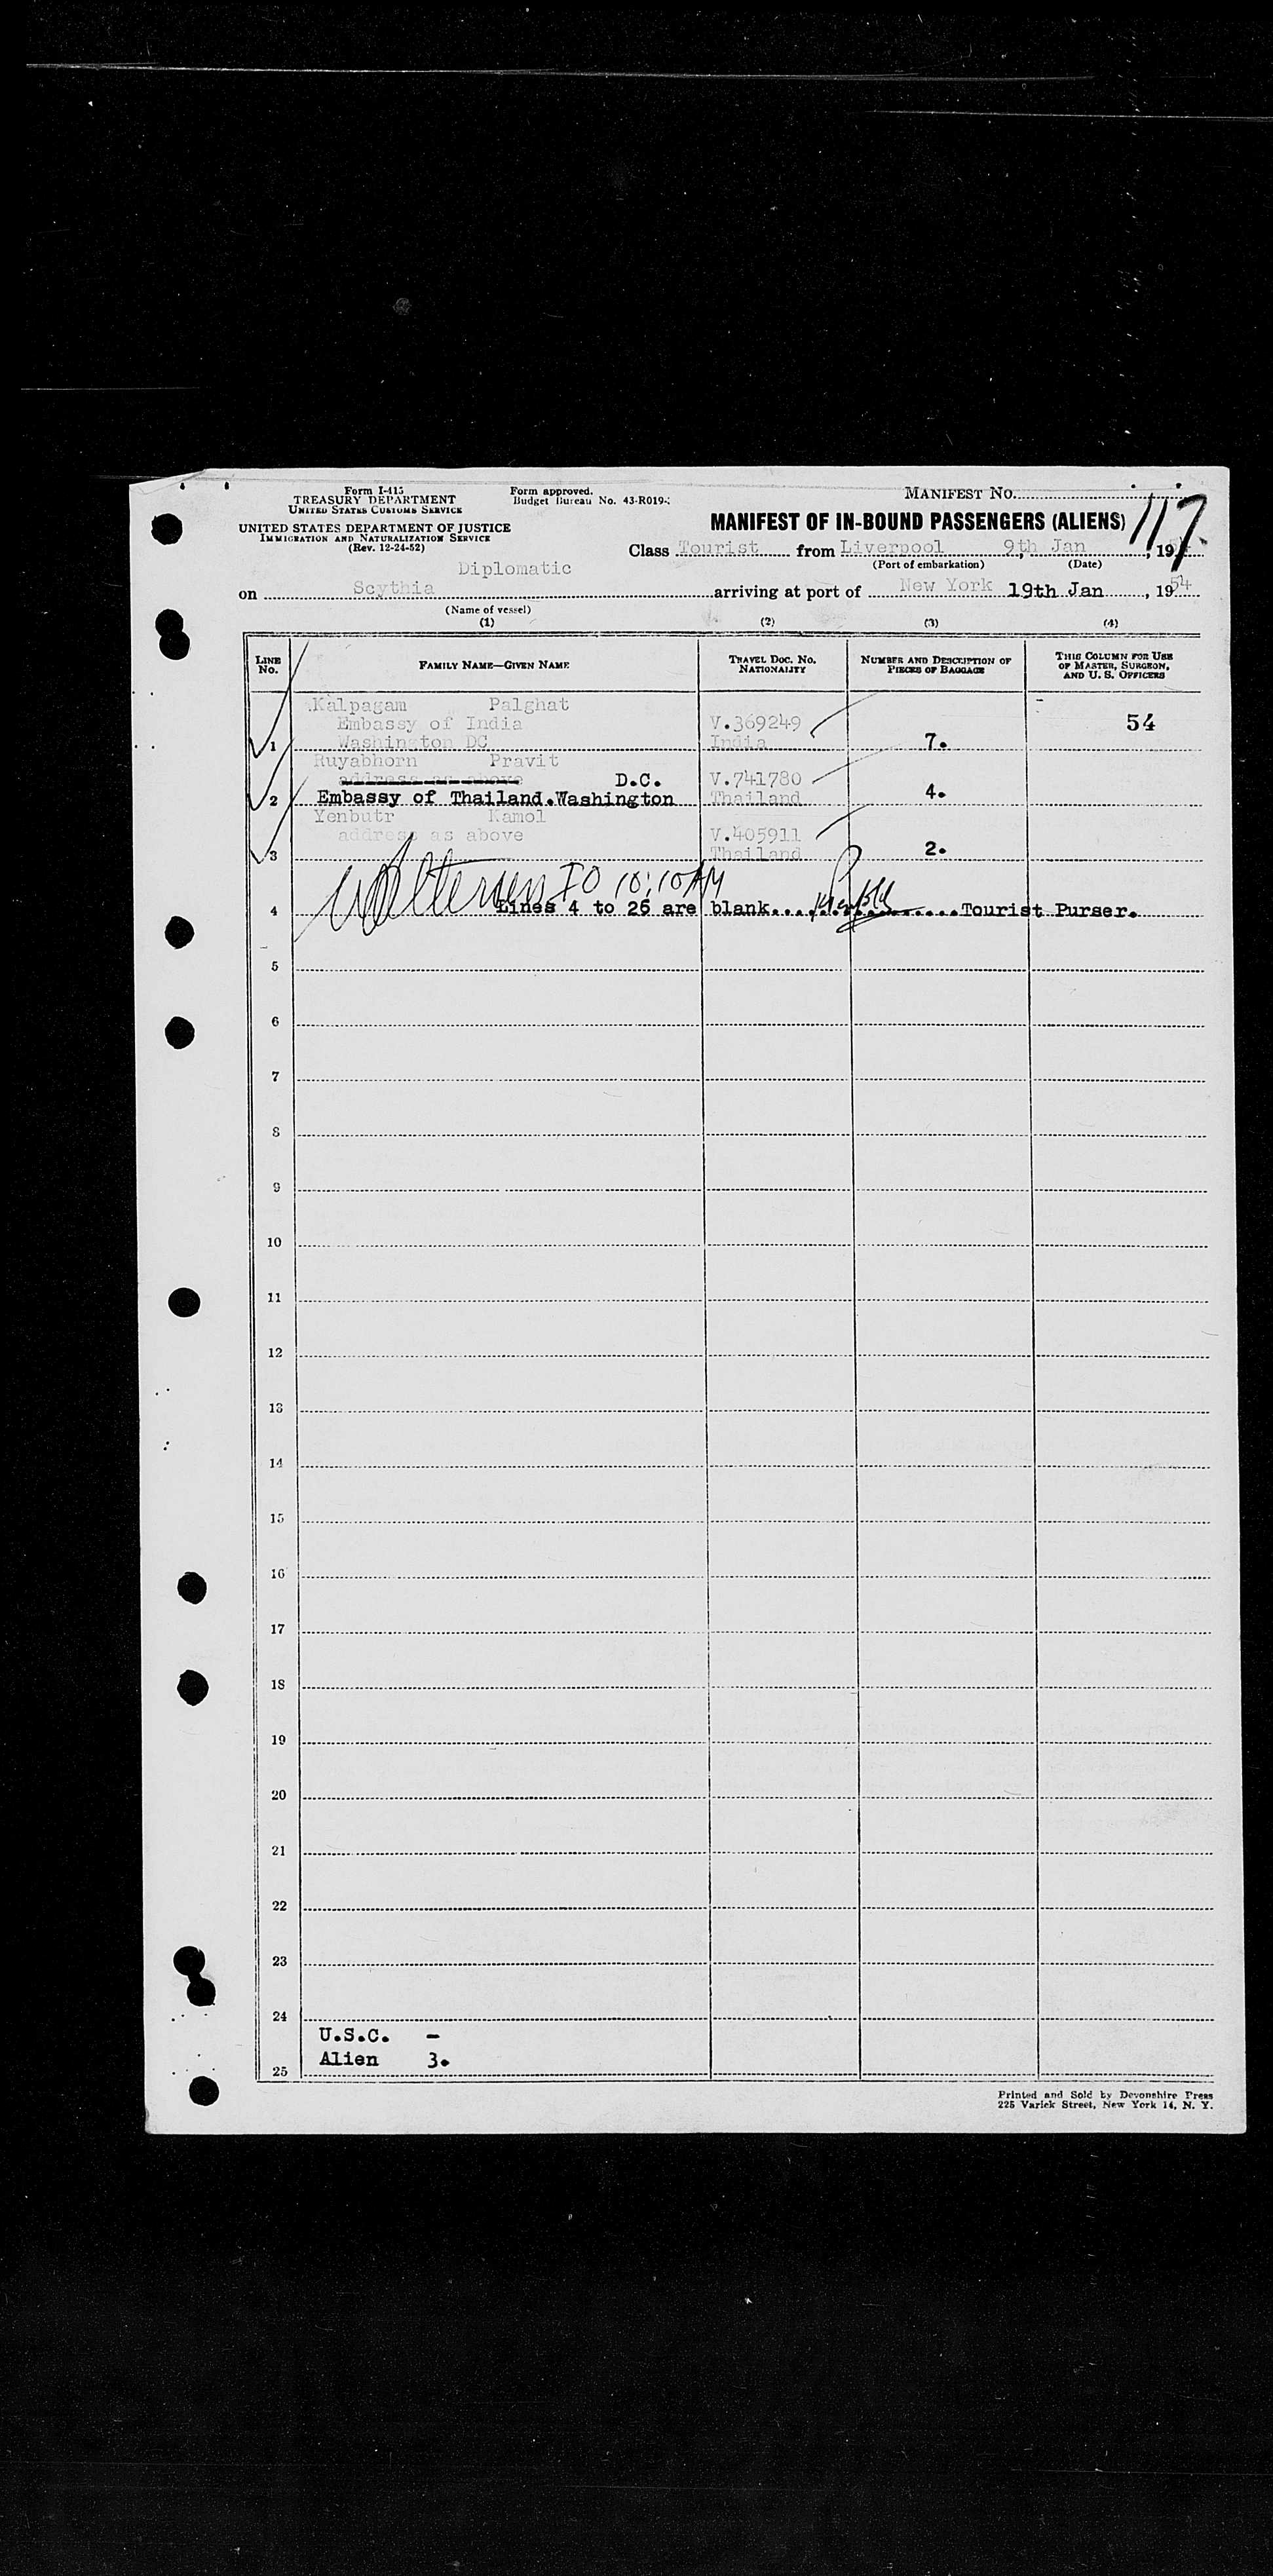 Form I-415
TREASURY DEPARTMENT
UNITED STATES CUSTOMS SERVICE
Form approved.
Budget Bureau No. 43-R019-
UNITED STATES DEPARTMENT OF JUSTICE
IMMIGRATION AND NATURALIZATION SERVICE
(Rev. 12-24-52)
MANIFEST No.
117
MANIFEST OF IN-BOUND PASSENGERS (ALIENS)
Class Tourist from Liverpool 9th Jan, 19
(Port of embarkation) (Date)
Diplomatic
on Scythia arriving at port of New York 19th Jan, 1954
(Name of vessel)
(1) (2) (3) (4)
LINE No. FAMILY NAME—GIVEN NAME TRAVEL DOC. NO. NATIONALITY NUMBER AND DESCRIPTION OF PIECES OF BAGGAGE THIS COLUMN FOR USE OF MASTER, SURGEON, AND U. S. OFFICERS
Kalpagam Palghat
Embassy of India V.369249 54
1 Washington DC India 7.
Ruyabhorn Pravit
address as above D.C. V.741780
2 Embassy of Thailand.Washington Thailand 4.
Yenbutr Kamol
address as above V.405911
3 Thailand 2.
IO 10:10 AM
4 Lines 4 to 25 are blank.................Tourist Purser.
5
6
7
8
9
10
11
12
13
14
15
16
17
18
19
20
21
22
23
24
U.S.C. -
Alien 3.
25
Printed and Sold by Devonshire Press
225 Varick Street, New York 14, N. Y.